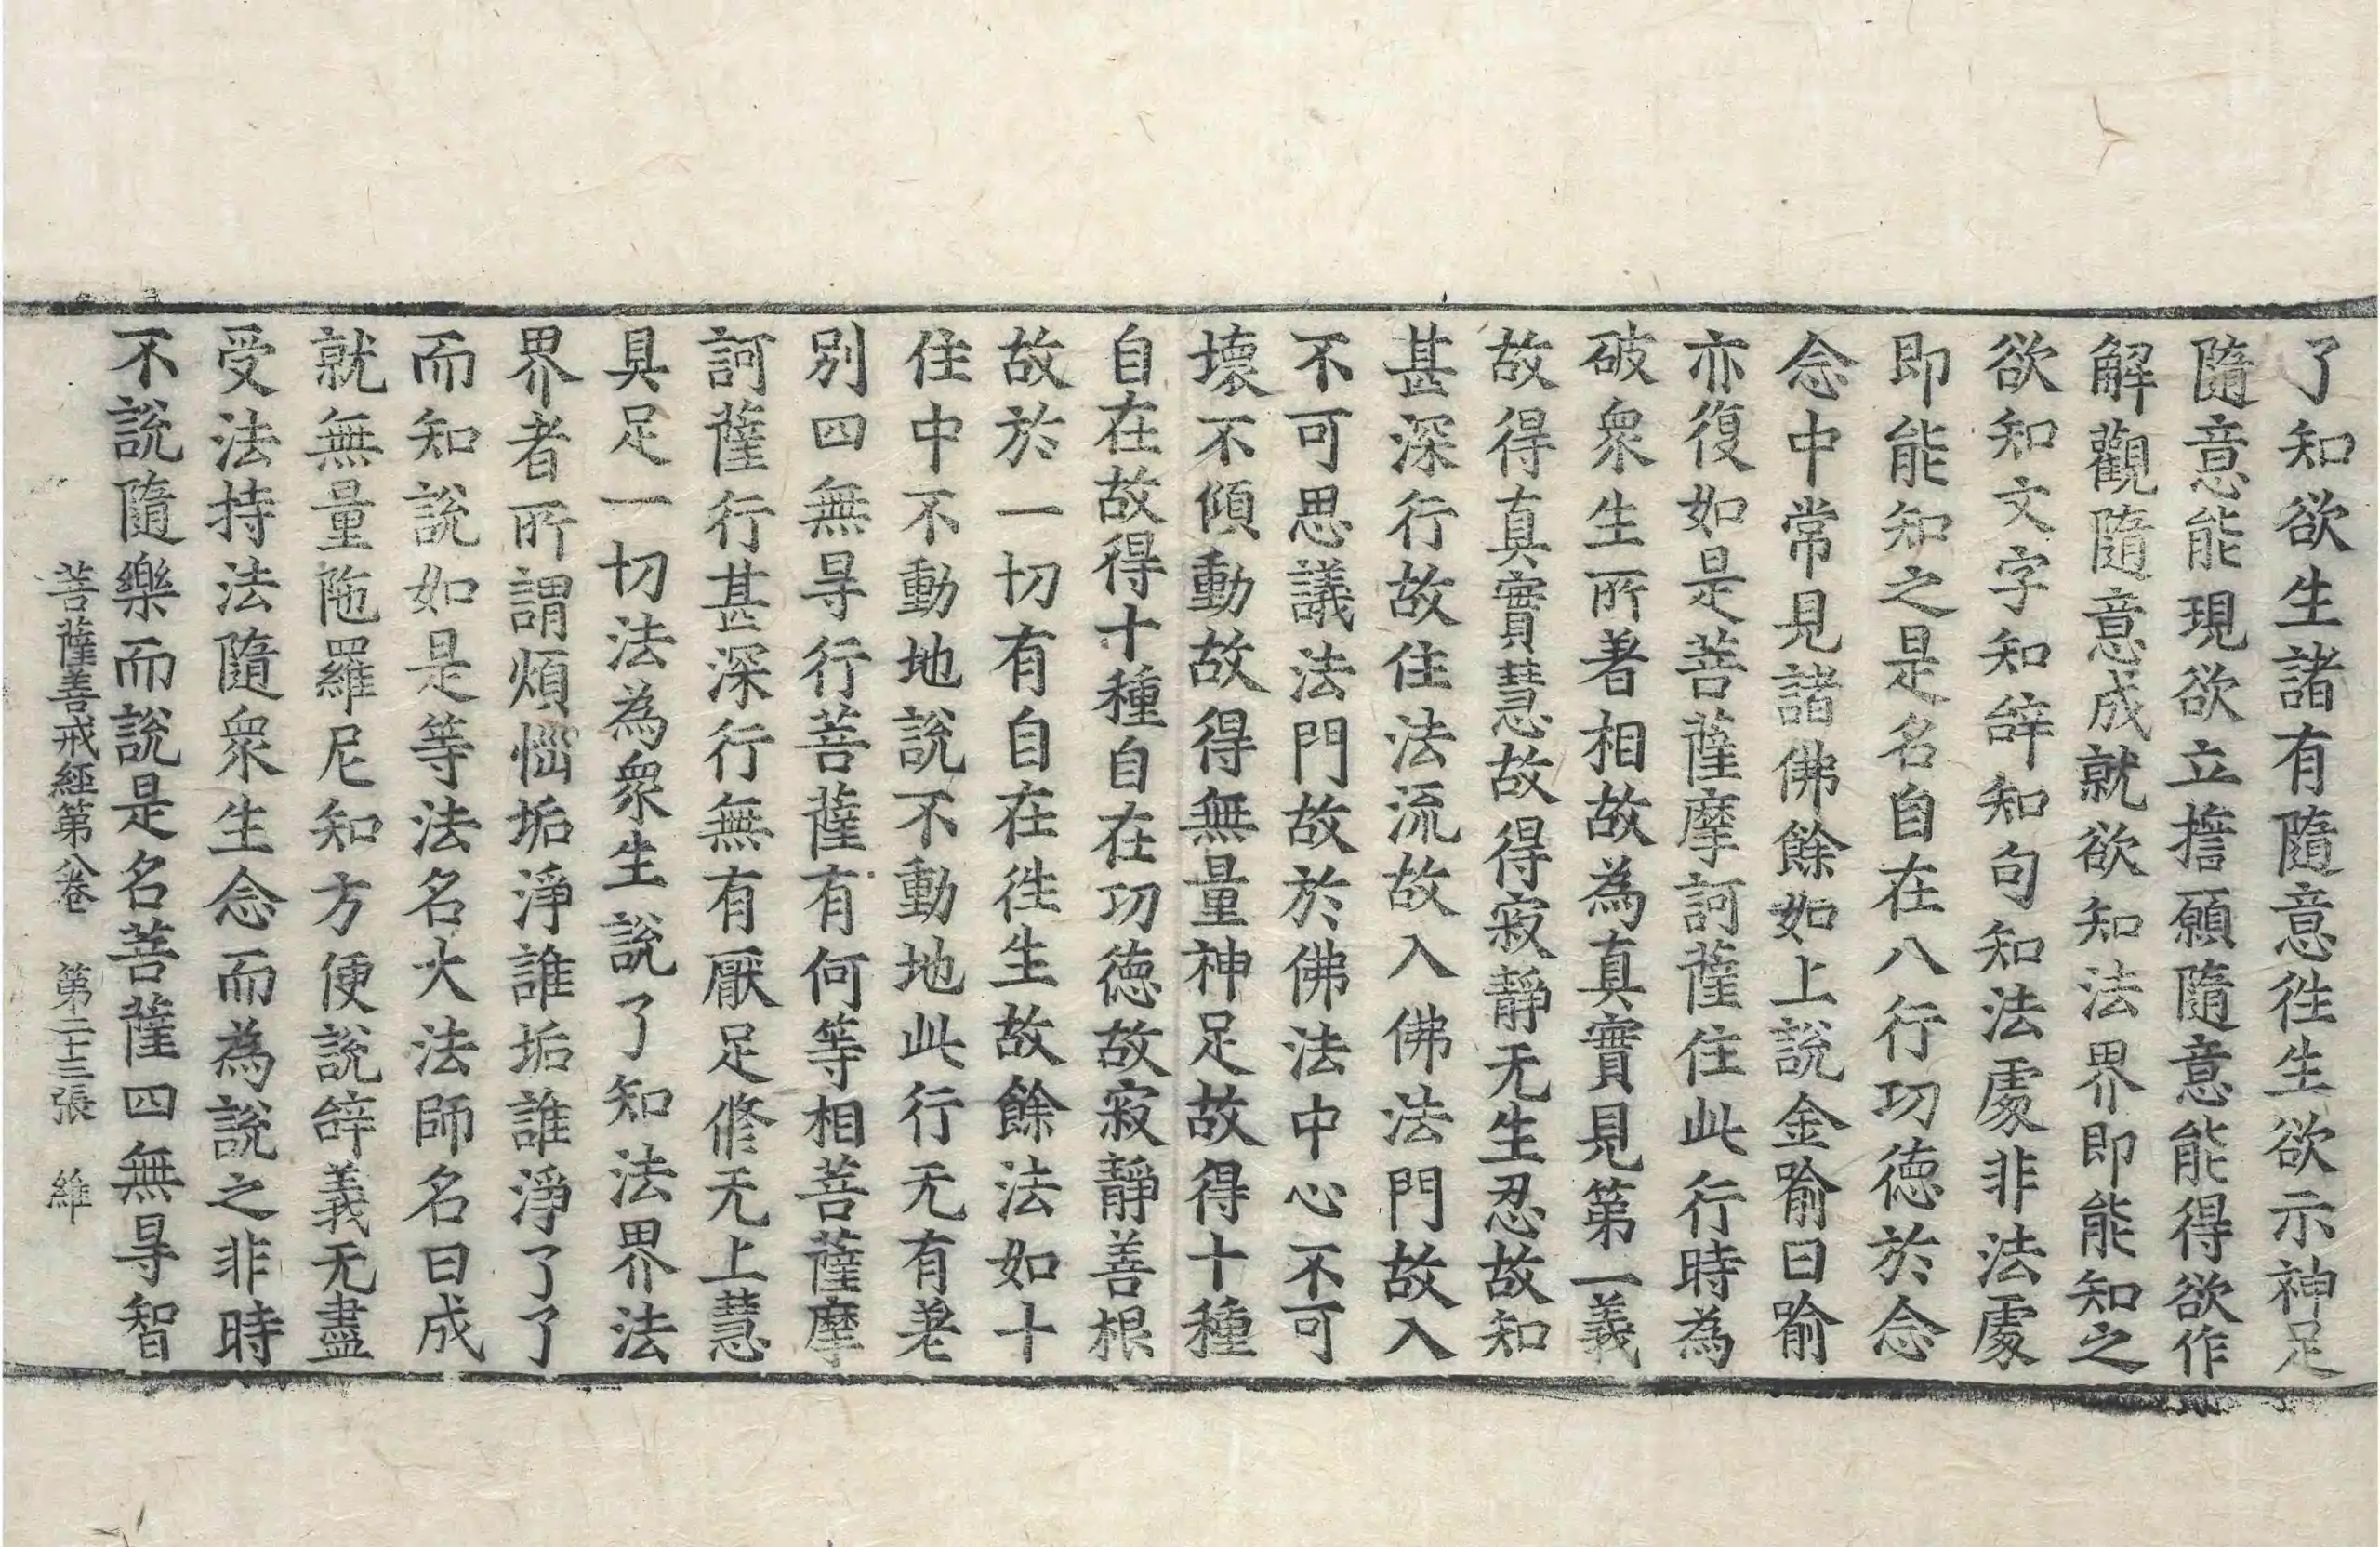 了知欲生諸有隨意徃生欲示神足
隨意能現欲立擔願隨意能得欲作
解觀隨意成就欲知法界即能知之
欲知文字知辝知句知法處非法處
即能知之是名自在八行功德於念
念中常見諸佛餘如上說金喻曰喻
亦復如是菩薩摩訶薩住此行時為
破衆生所著相故為真實見第一義
故得真實慧故得寂靜无生忍故知
甚深行故住法流故入佛法門故入
不可思議法門故於佛法中心不可
壞不傾動故得無量神足故得十種
自在故得十種自在功德故寂靜善根
故於一切有自在徃生故餘法如十
住中不動地說不動地此行无有差
別四無㝵行菩薩有何等相菩薩摩
訶薩行甚深行無有厭足修无上慧
具足一切法為衆生說了知法界法
界者所謂煩惱垢淨誰垢誰淨了了
而知說如是等法名大法師名曰成
就無量陁羅尼知方便說辝義无盡
受法持法隨衆生念而為說之非時
不說隨樂而說是名菩薩四無㝵智
菩薩善戒經第八卷　第二十三張　維